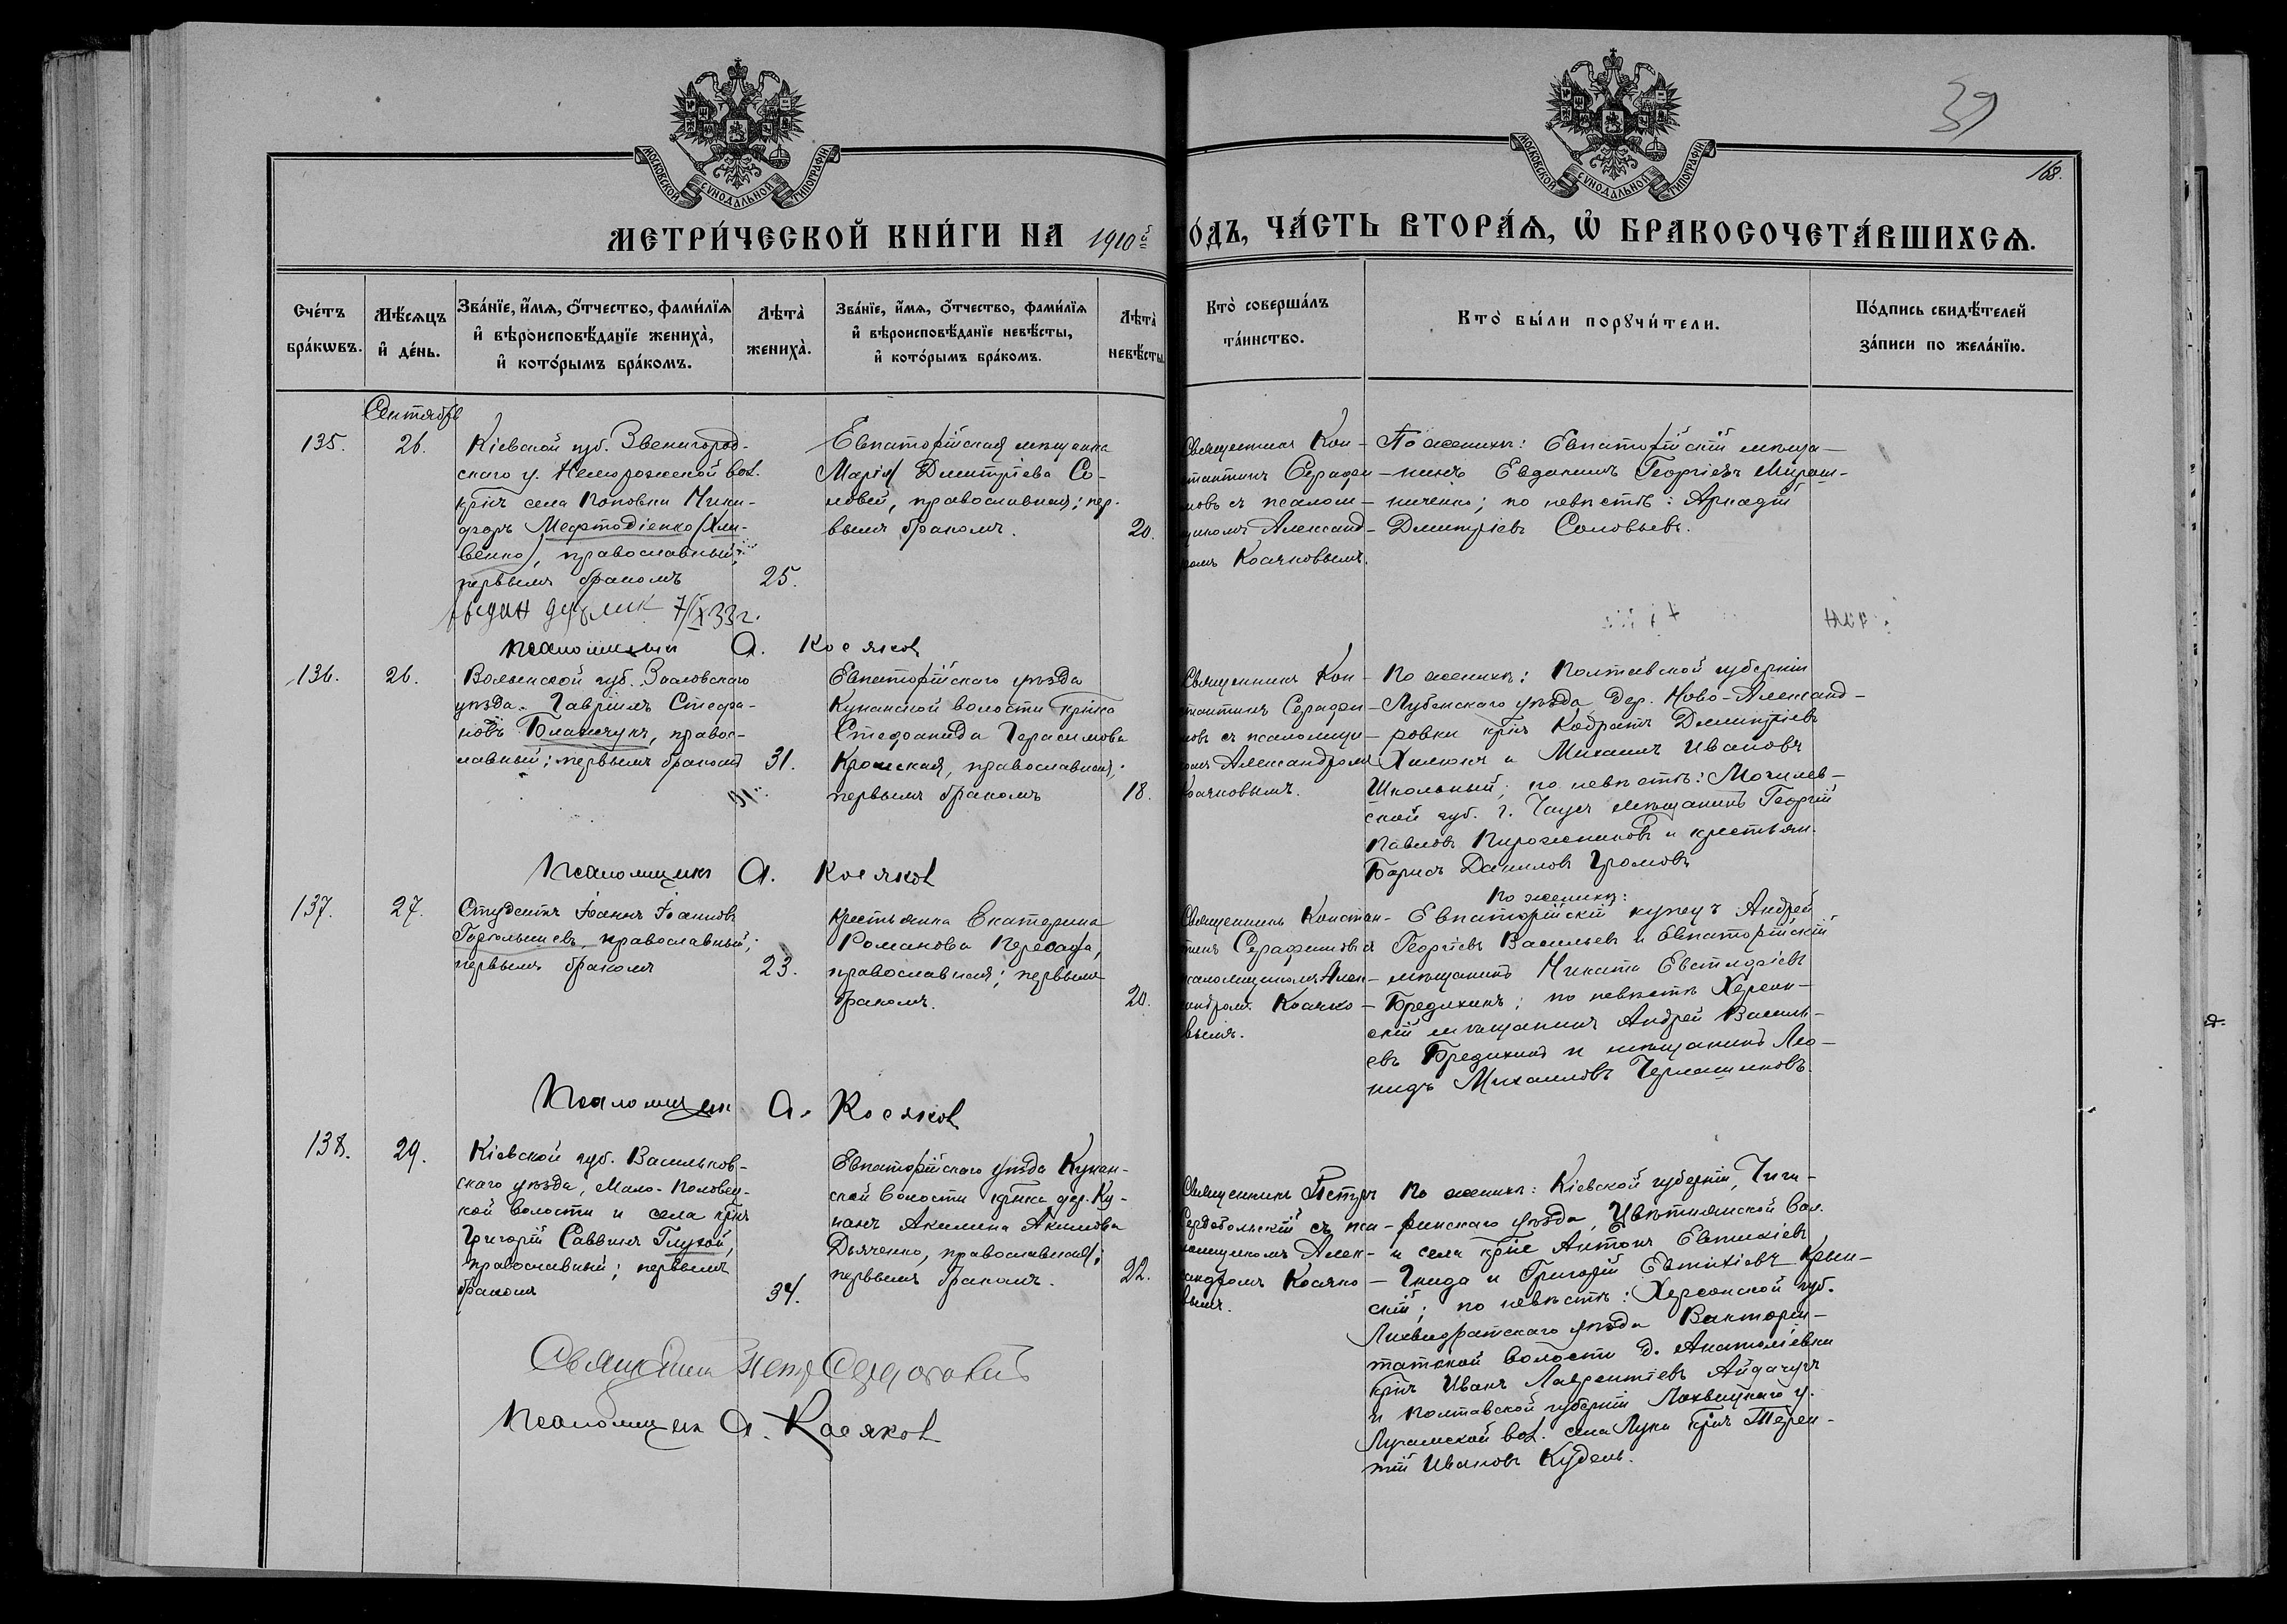 39
168.
МОСКОВСКОЙ СУНОДАЛЬНОЙ ТИПОГРАФІИ
МОСКОВСКОЙ СУНОДАЛЬНОЙ ТИПОГРАФІИ
МЕТРИ́ЧЕСКОЙ КНИ́ГИ НА 1910й
О́ДЪ, ЧА́СТЬ ВТОРА́Ѧ, Ѡ҆ БРАКОСОЧЕТА́ВШИХСѦ.
Сче́тъ
бра́кѡвъ.
Мѣ́сѧцъ
и҆ де́нь.
Зва́нїе, и҆́мѧ, ѻ҆́тчество, фами́лїѧ
и҆ вѣроисповѣ́данїе жениха̀,
и҆ кото́рымъ бра́комъ.
Лѣта̀
жениха̀.
Зва́нїе, и҆́мѧ, ѻ҆́тчество, фами́лїѧ
и҆ вѣроисповѣ́данїе невѣ́сты,
и҆ кото́рымъ бра́комъ.
Лѣта̀
невѣ́сты
Кто̀ соверша́лъ
та́инство.
Кто̀ бы́ли порꙋчи́тели.
По́дпись свидѣ́телей
за́писи по жела́нїю.
Сентябрь
135.
26.
Кіевской губ. Звенигород-
скаго у. вол.
крнъ села Поповки Ники-
форъ Мефтодіенко (Хли-
венко), православный;
первымъ бракомъ
25.
Евпаторійская мѣщанка
Марія Димитріева Со-
ловей, православная; пер-
вымъ бракомъ.
20.
Священникъ Кон-
стантинъ Серафи-
мовъ съ псалом-
щикомъ Александ-
ромъ Косяковымъ.
По женихѣ: Евпаторійскій мѣща-
нинъ Евдокимъ Георгіевъ Мирош-
ниченко; по невѣстѣ: Аркадій
Димитріевъ Соловьевъ.
выдан 7/IX 33 г.
Псаломщикъ А. Косяков
136.
26.
Волынской губ. Заславскаго
уѣзда Гавріилъ Стефа-
новъ Блажчукъ, правос-
лавный; первымъ бракомъ
31.
Евпаторійскаго уѣзда
Кунанской волости крнка
Стефанида Герасимова
Кромская, православная;
первымъ бракомъ
18.
Священникъ Кон-
стантинъ Серафи-
мовъ съ псаломщи-
комъ Александромъ
Косяковымъ.
По женихѣ: Полтавской губерніи
Лубенскаго уѣзда дер. Ново-Александ-
ровки крнъ Кодратъ Димитріевъ
Хилюкъ и Михаилъ Ивановъ
Школьный; по невѣстѣ: Могилев-
ской губ. г. Чаусъ мѣщанинъ Георгій
Павловъ Пирожниковъ и крестьян.
Борисъ Даниловъ Громовъ
Псаломщикъ А. Косяков
137.
27.
Студентъ Іоаннъ Іоанновъ
православный;
первымъ бракомъ
23.
Крестьянка Екатерина
Романова Пересада,
православная; первымъ
бракомъ.
20.
Священникъ Констан-
тинъ Серафимовъ съ
псаломщикомъ Алек-
сандромъ Косяко-
вымъ.
По женихѣ:
Евпаторійскій купецъ Андрей
Георгіевъ Васильевъ и Евпаторійскій
мѣщанинъ Никита Евстафіевъ
Бредихинъ; по невѣстѣ Херсон-
скій мѣщанинъ Андрей Василь-
евъ Бредихинъ и мѣщанинъ Лео-
нидъ Михаиловъ Чермашниковъ.
Псаломщик А. Косяков
138.
29.
Кіевской губ. Васильков-
скаго уѣзда, Мало-Половец-
кой волости и села крнъ
Григорій Саввинъ Глухой,
православный; первымъ
бракомъ
34.
Евпаторійскаго уѣзда Кунан-
ской волости крнка дер. Ку-
нанъ Акилина Акимова
Дьяченко, православная;
первымъ бракомъ.
22.
Священникъ Петръ
Сердобольскій съ пса-
ломщикомъ Алек-
сандромъ Косяко-
вымъ.
По женихѣ: Кіевской губерніи, Чиги-
ринскаго уѣзда, Цвѣтнянской вол.
и села крне Антонъ Евтихіевъ
Гнида и Григорій Евтихіевъ Крым-
скій; по невѣстѣ: Херсонской губ.
уѣзда Виктори-
татской волости д. Анатоліевки
крнъ Иванъ Лаврентіевъ Айдачукъ
и Полтавской губерніи Лохвицкаго у.
Лучанской вол. села Луки крнъ Терен-
тій Ивановъ Кудель.
Священник Петр Сердобольский
Псаломщик А. Косяков